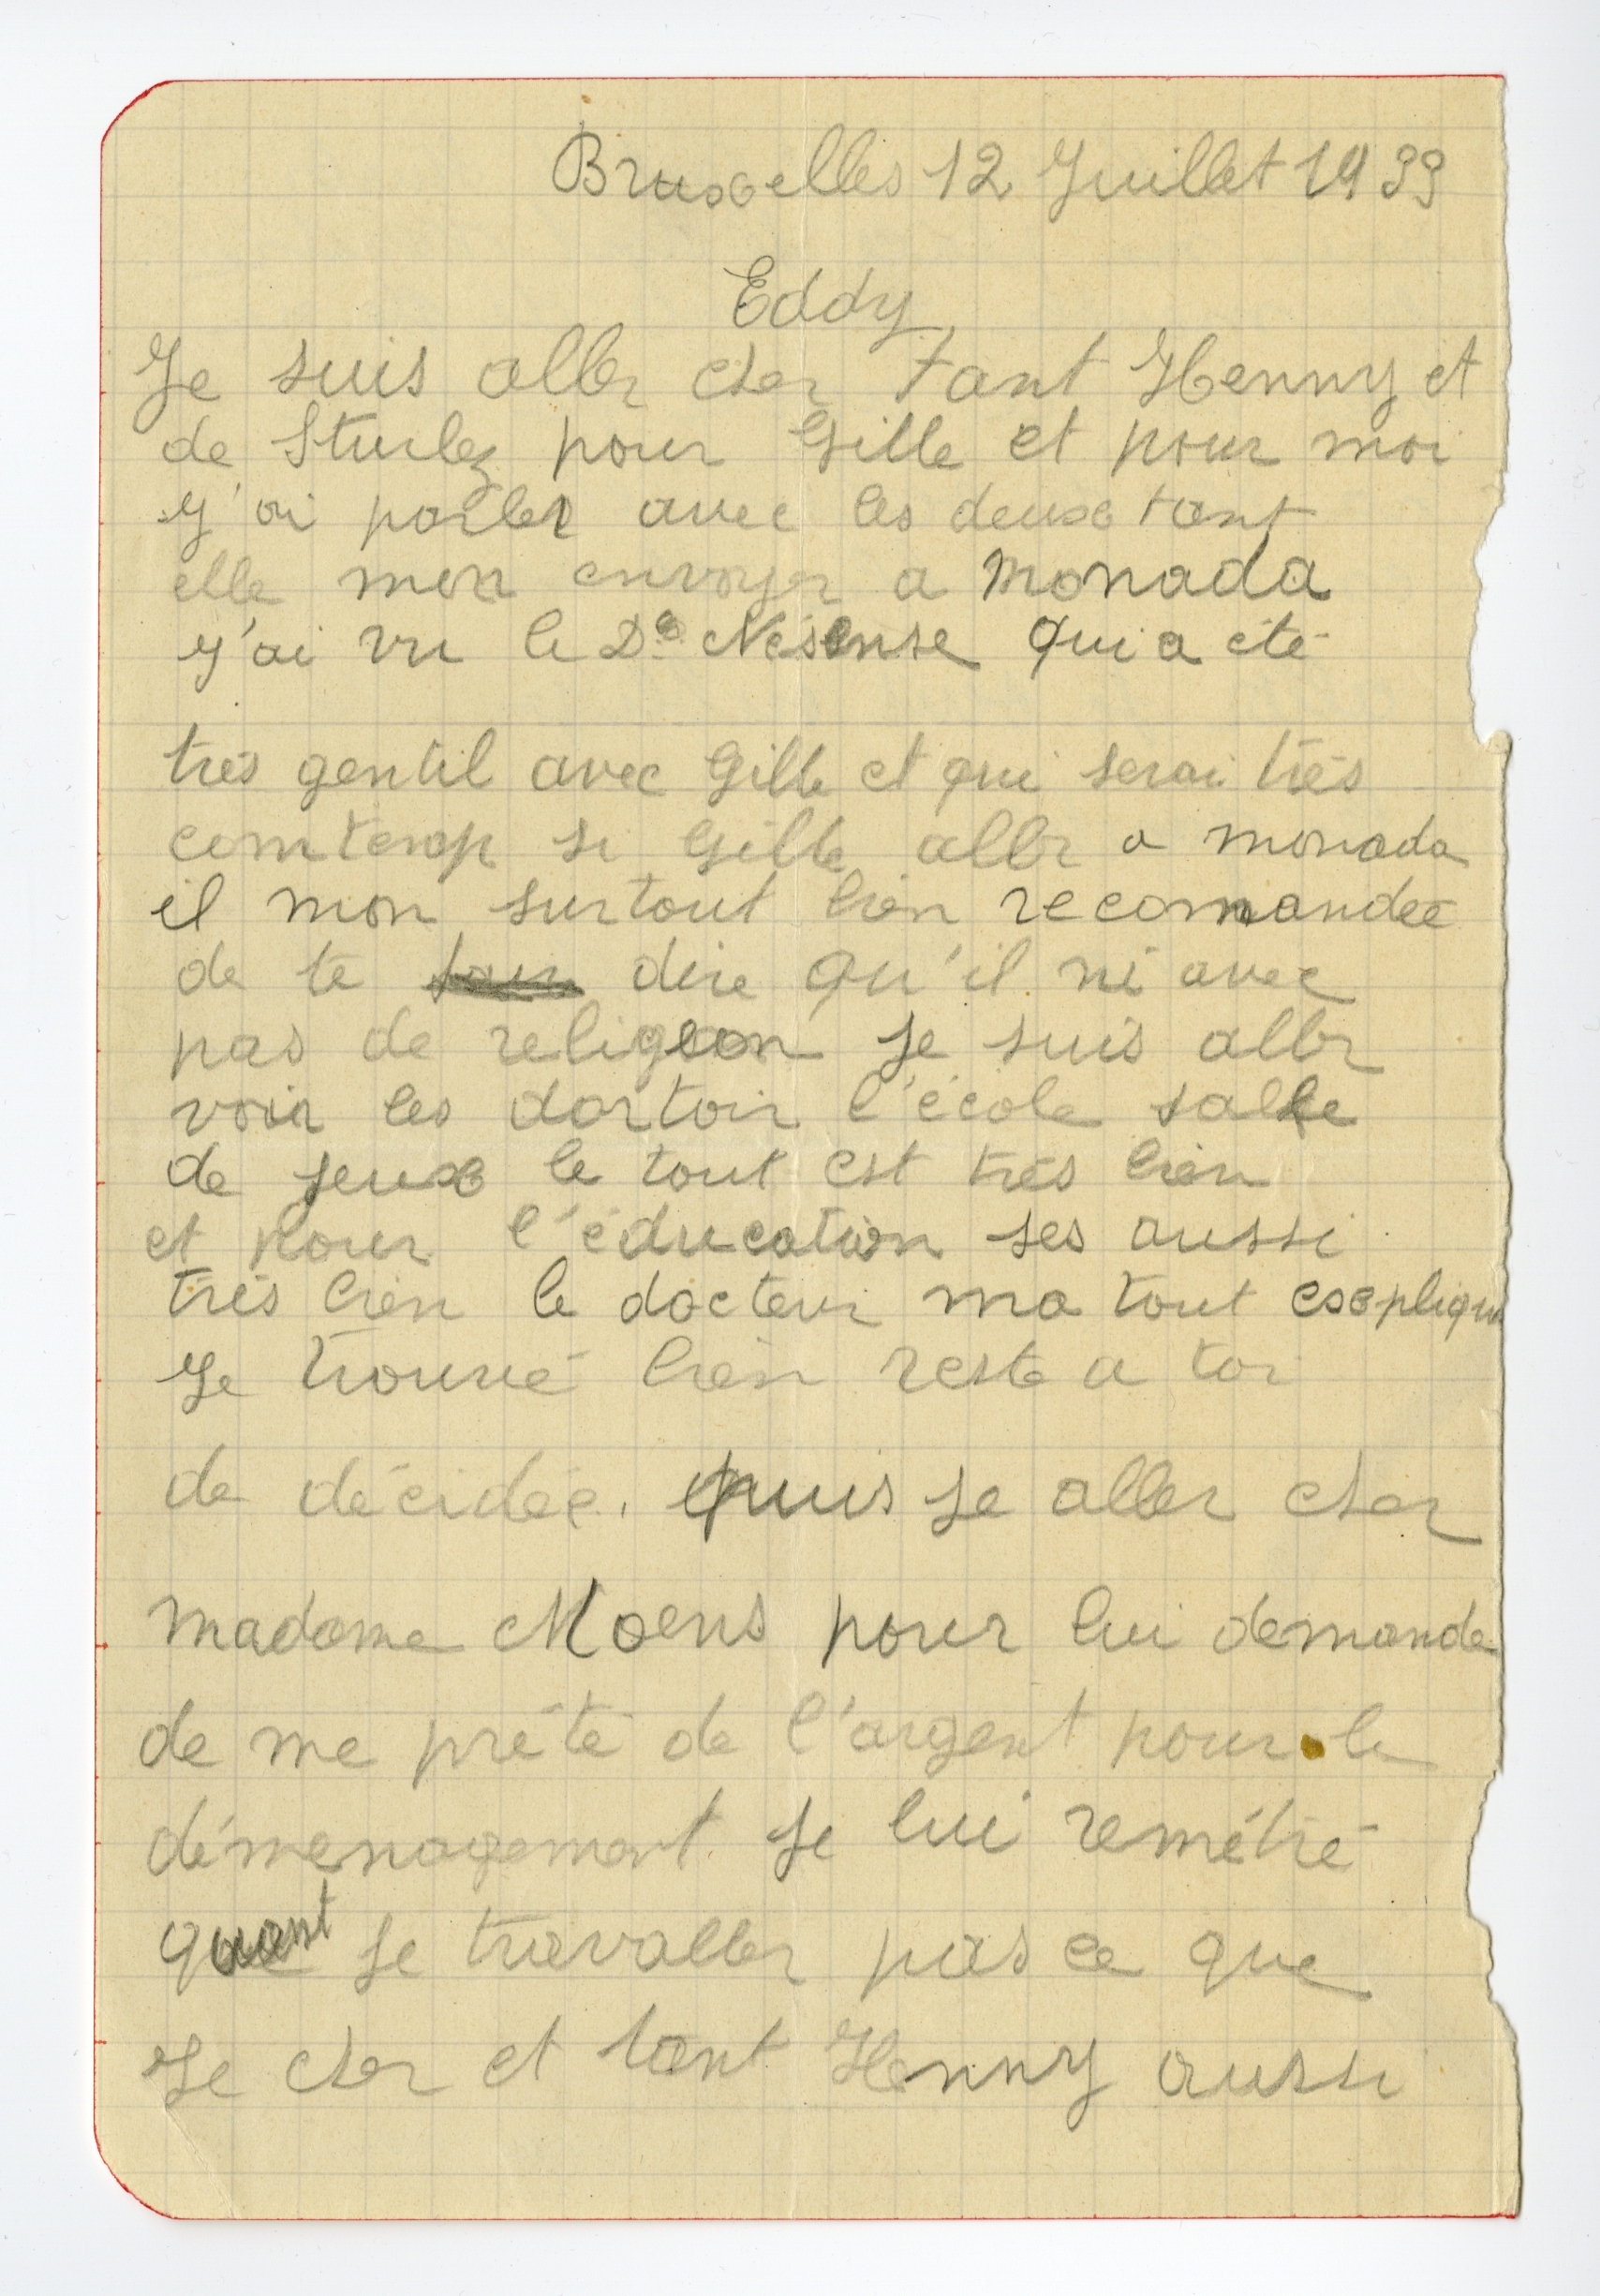 Bruxelles 12 Juillet 1939
Eddy
Je suis aller cher Tant Henny et
de Sturlez pour Gille et pour moi
j'ai parler avec les deux tant
elle mon envoyer a monada
j'ai vu le Dr qui a été
très gentil avec Gille et qui serai très
si Gille aller a monada
il mon surtout bien recomandée
de te dire qu'il ni avec
pas de religion je suis aller
voir les dortoir l'école salle
de jeux le tout est très bien
et pour l'éducation ses aussi
très bien le docteur ma tout explique
Je trouvé bien reste a toi
de décidée. puis je aller cher
madame Moens pour lui demande
de me prété de l'argent pour le
déménagement je lui remétré
quant je travaller pas ce que
Je cher et tant Henny aussi